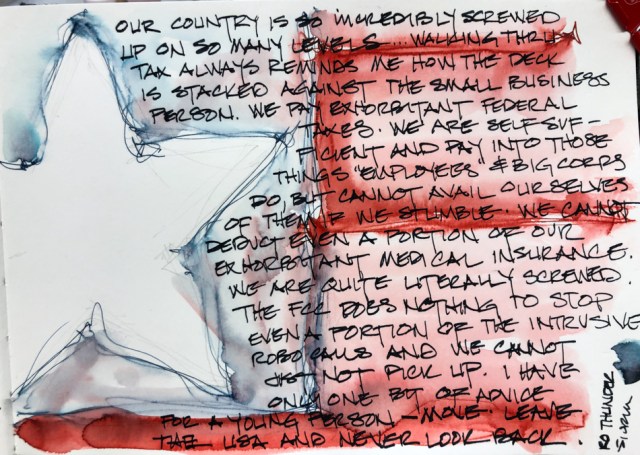 OUR COUNTRY IS SO INCREDIBLY SCREWED
UP ON SO MANY LEVELS... WALKING THRU
TAX ALWAYS REMINDS ME HOW THE DECK
IS STACKED AGAINST THE SMALL BUSINESS
PERSON. WE PAY EXHORBITANT FEDERAL
TAXES. WE ARE SELF-SUF-
FICIENT AND PAY INTO THOSE
THINGS "EMPLOYEES" & BIG CORPS
DO, BUT CANNOT AVAIL OURSELVES
OF THEM IF WE STUMBLE. WE CANNOT
DEDUCT EVEN A PORTION OF OUR
EXHORBITANT MEDICAL INSURANCE.
WE ARE QUITE LITERALLY SCREWED
THE FCC DOES NOTHING TO STOP
EVEN A PORTION OF THE INTRUSIVE
ROBO CALLS AND WE CANNOT
JUST NOT PICK UP. I HAVE
ONLY ONE BIT OF ADVICE
FOR A YOUNG PERSON - MOVE. LEAVE
THE USA AND NEVER LOOK BACK.
RO THUNDER